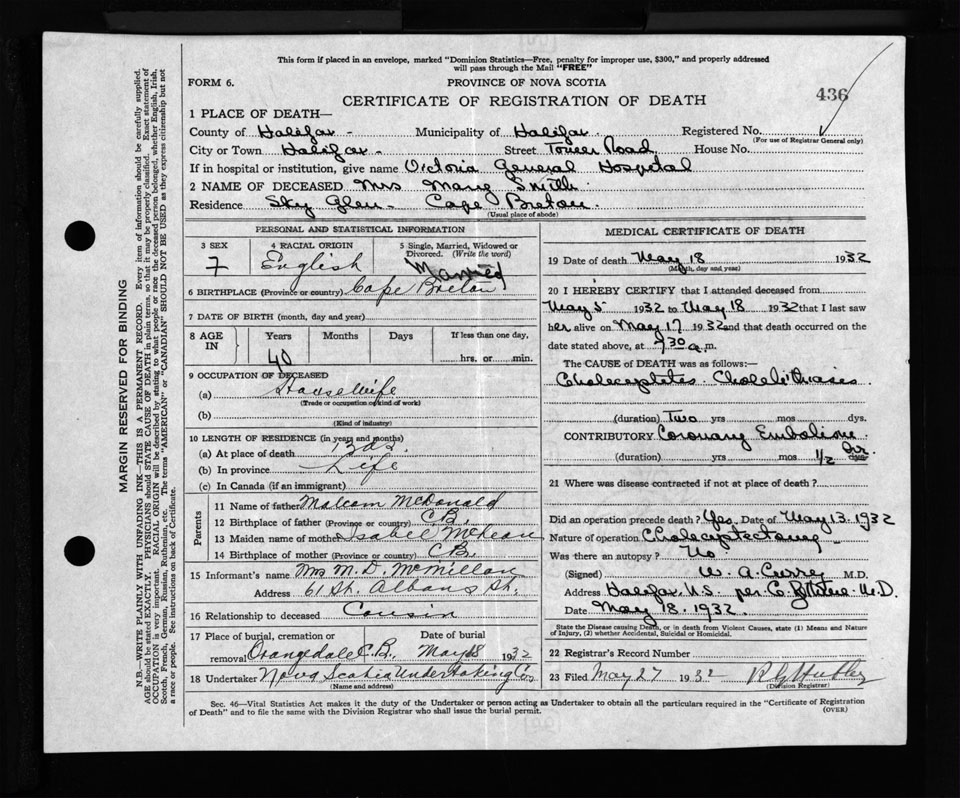 This form if placed in an envelope, marked "Dominion Statistics—Free, penalty for improper use, $300," and properly addressed
will pass through the Mail "FREE"
FORM 6.
PROVINCE OF NOVA SCOTIA
436
CERTIFICATE OF REGISTRATION OF DEATH
1 PLACE OF DEATH—
County of Halifax - Municipality of Halifax. Registered No.
(For use of Registrar General only)
City or Town Halifax - Street Tower Road House No.
If in hospital or institution, give name Victoria General Hospital
2 NAME OF DECEASED Mrs Mary Smith.
Residence Sky Glen - Cape Breton.
(Usual place of abode)
PERSONAL AND STATISTICAL INFORMATION
3 SEX 4 RACIAL ORIGIN 5 Single, Married, Widowed or
Divorced. (Write the word)
F English Married
6 BIRTHPLACE (Province or country) Cape Breton
7 DATE OF BIRTH (month, day and year)
8 AGE IN Years Months Days If less than one day,
40 hrs. or min.
9 OCCUPATION OF DECEASED
(a) Housewife
(Trade or occupation or kind of work)
(b)
(Kind of industry)
10 LENGTH OF RESIDENCE (in years and months)
(a) At place of death
(b) In province Life
(c) In Canada (if an immigrant)
Parents
11 Name of father Malcom McDonald
12 Birthplace of father (Province or country) C.B.
13 Maiden name of mother Isabel McLean
14 Birthplace of mother (Province or country) C.B.
15 Informant's name Mrs M. D. McMillan
Address 61 St. Albans St.
16 Relationship to deceased Cousin
17 Place of burial, cremation or Date of burial
removal Orangedale C.B., May 18 1932
18 Undertaker Nova Scotia Undertaking Co
(Name and address)
MEDICAL CERTIFICATE OF DEATH
19 Date of death May 18 1932
(Month, day and year)
20 I HEREBY CERTIFY that I attended deceased from
May 5 1932 to May 18 1932 that I last saw
her alive on May 17 1932 and that death occurred on the
date stated above, at 30 a.m.
The CAUSE of DEATH was as follows:—
Cholecystitis Cholelithiasis
(duration) Two yrs mos dys.
CONTRIBUTORY Coronary Embolism.
(duration) yrs mos 1/2 hr dys.
21 Where was disease contracted if not at place of death?
Did an operation precede death? Yes. Date of May 13. 1932
Nature of operation Cholecystectomy
Was there an autopsy? No
(Signed) W. A. Curry M.D.
Address Halifax N.S. per M.D.
Date May 18. 1932.
State the Disease causing Death, or in death from Violent Causes, state (1) Means and
Nature of Injury, (2) whether Accidental, Suicidal or Homicidal.
22 Registrar's Record Number
23 Filed May 27 1932
(Division Registrar)
Sec. 46—Vital Statistics Act makes it the duty of the Undertaker or person acting as Undertaker to obtain all the particulars required in the "Certificate of Registration
of Death" and to file the same with the Division Registrar who shall issue the burial permit. (OVER)
MARGIN RESERVED FOR BINDING
N.B.—WRITE PLAINLY WITH UNFADING INK—THIS IS A PERMANENT RECORD. Every item of information should be carefully supplied.
AGE should be stated EXACTLY. PHYSICIANS should STATE CAUSE OF DEATH in plain terms, so that it may be properly classified. Exact statement of
OCCUPATION is very important. RACIAL ORIGIN will be described by stating to what people or race the deceased person belonged, whether English, Irish,
Scotch, French, German, Russian, Ruthenian, etc. The terms "AMERICAN" or "CANADIAN" SHOULD NOT BE USED as they express citizenship but not
a race or people. See instructions on back of Certificate.